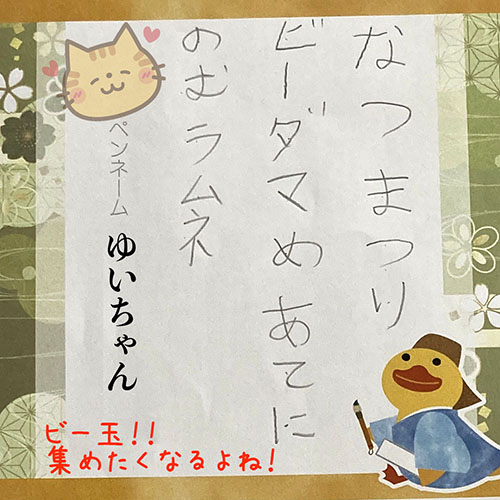 なつまつり
ビーダマめあてに
のむラムネ
ペンネーム ゆいちゃん
ビー玉!!
集めたくなるよね!